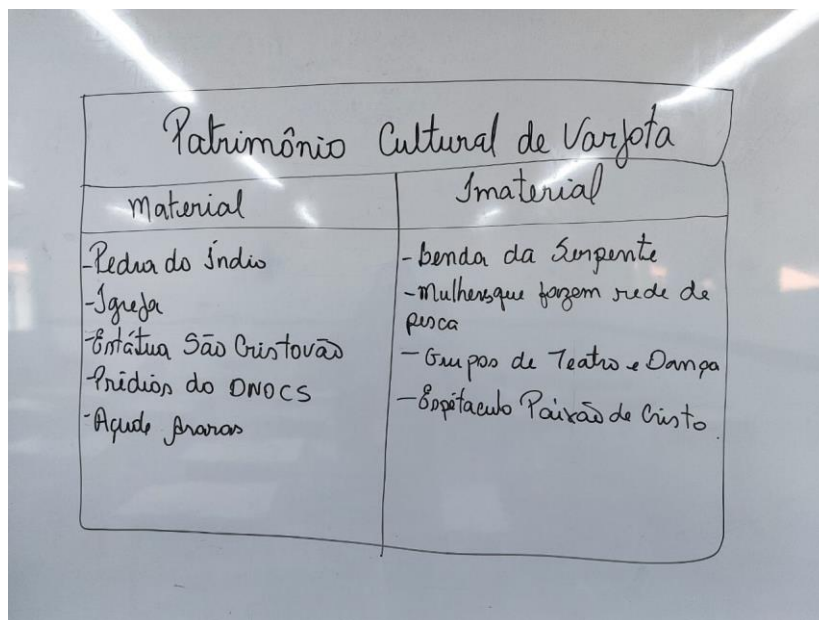 Patrimônio Cultural de Varjota
Material
-Pedra do Índio
-Igreja
-Estátua São Cristovão
-Prédios do DNOCS
-Açude Araras
Imaterial
-Lenda da Serpente
-Mulheres que fazem rede de
pesca
-Grupos de Teatro e Dança
-Espetaculo Paixão de Cristo.